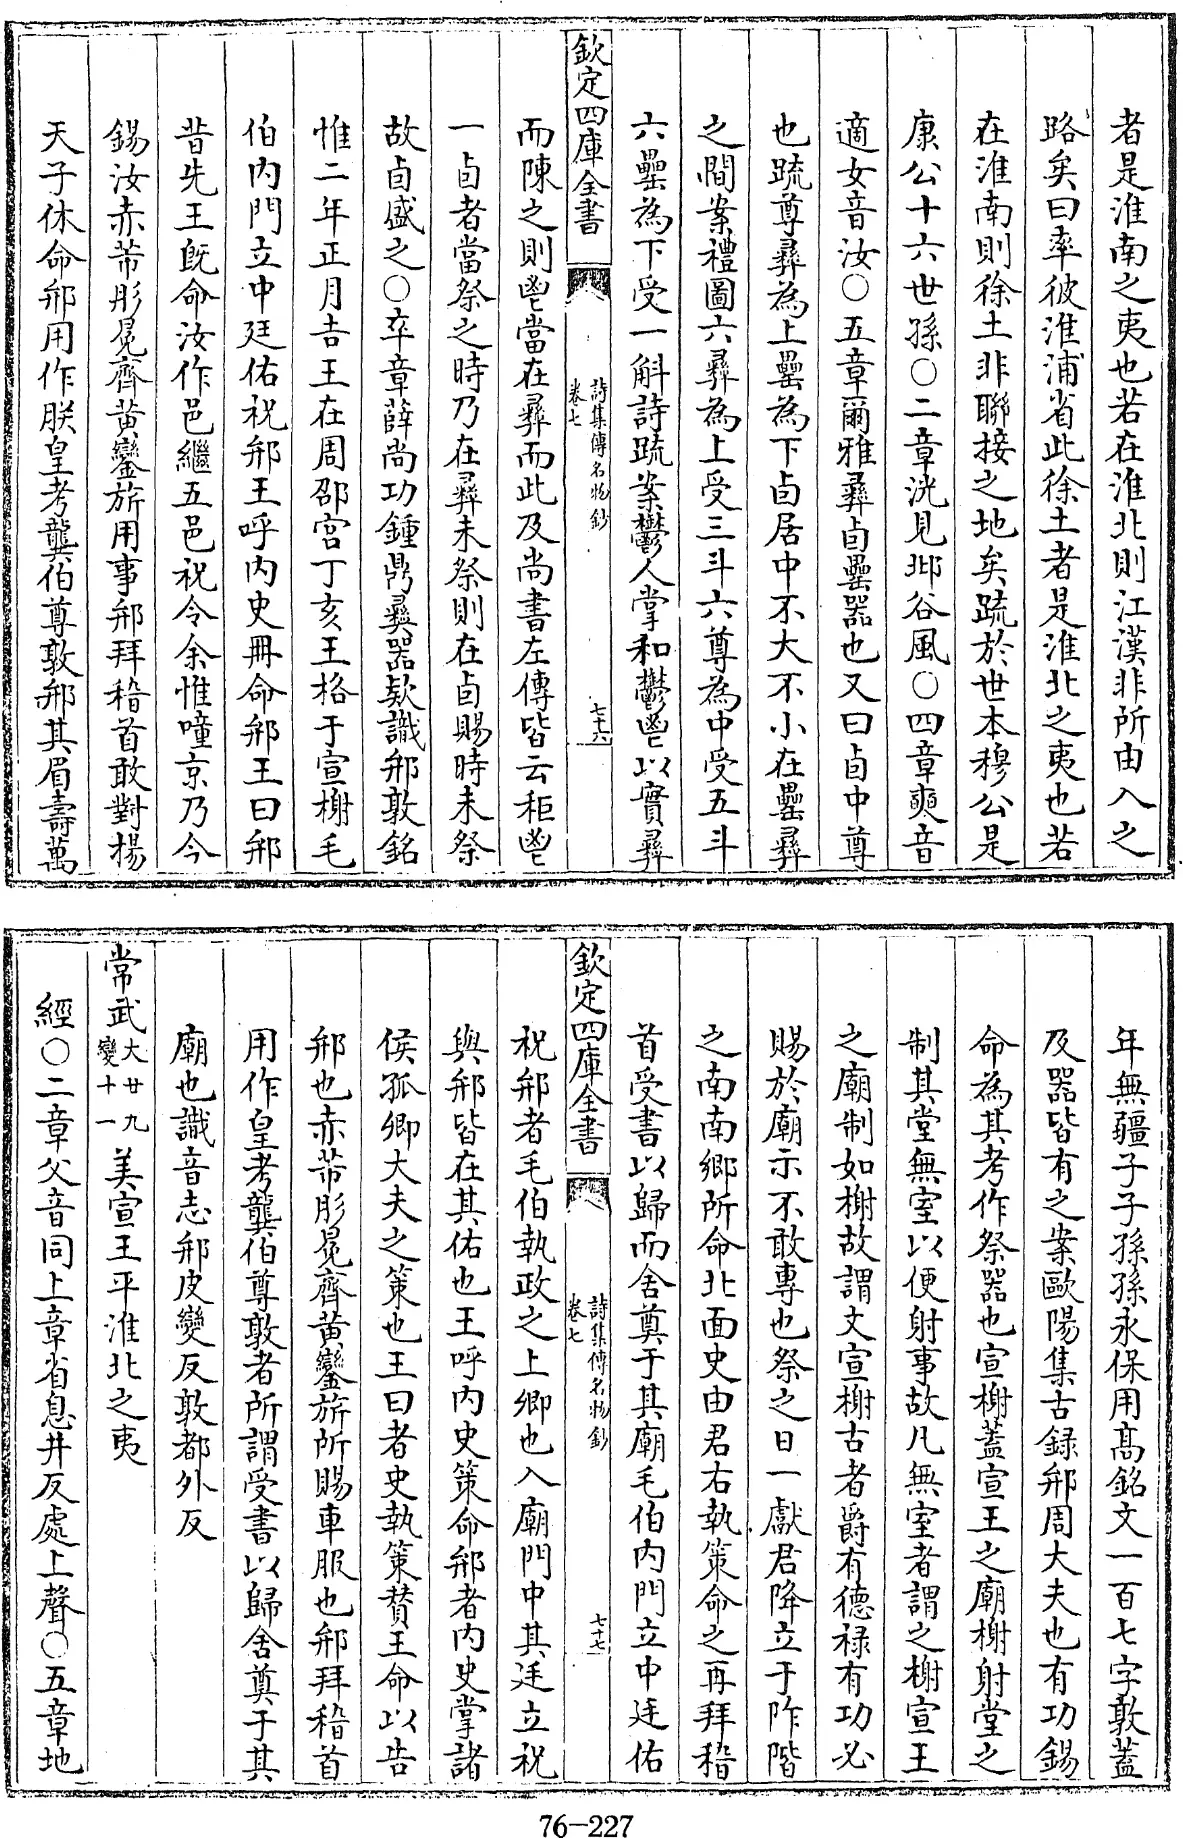 者是淮南之夷也若在淮北則江漢非所由入之
路矣曰率彼淮浦省此徐土者是淮北之夷也若
在淮南則徐土非聯接之地矣疏於世本穆公是
康公十六世孫○二章洸見邶谷風○四章奭音
適女音汝○五章爾雅彞卣罍器也又曰卣中尊
也疏尊彞為上罍為下卣居中不大不小在罍彞
之間案禮圖六彞為上受三斗六尊為中受五斗
六罍為下受一斛詩疏案鬱人掌和鬱鬯以實彞
欽定四庫全書
詩集傳名物鈔
卷七
七十六
而陳之則鬯當在彞而此及尚書左傳皆云秬鬯
一卣者當祭之時乃在彞未祭則在卣賜時未祭
故卣盛之○卒章薛尚功鍾鼎彞器欵識䢵敦銘
惟二年正月吉王在周邵宫丁亥王格于宣榭毛
伯内門立中廷佑祝䢵王呼内史冊命䢵王曰䢵
昔先王既命汝作邑繼五邑祝令余惟㡣京乃今
錫汝赤芾彤冕齊黄鑾旂用事䢵拜稽首敢對揚
天子休命䢵用作朕皇考龔伯尊敦䢵其眉壽萬
年無疆子子孫孫永保用髙銘文一百七字敦葢
及器皆有之案歐陽集古録䢵周大夫也有功錫
命為其考作祭器也宣榭葢宣王之廟榭射堂之
制其堂無室以便射事故凡無室者謂之榭宣王
之廟制如榭故謂文宣榭古者爵有德禄有功必
賜於廟示不敢專也祭之日一獻君降立于阼階
之南南鄉所命北面史由君右執策命之再拜稽
首受書以歸而舍奠于其廟毛伯内門立中廷佑
欽定四庫全書
詩集傳名物鈔
卷七
七十七
祝䢵者毛伯執政之上卿也入廟門中其廷立祝
與䢵皆在其佑也王呼内史策命䢵者内史掌諸
侯孤卿大夫之策也王曰者史執策賛王命以告
䢵也赤芾彤冕齊黄鑾旂所賜車服也䢵拜稽首
用作皇考龔伯尊敦者所謂受書以歸舍奠于其
廟也識音志䢵皮變反敦都外反
常武大廿九變十一美宣王平淮北之夷
經○二章父音同上章省息井反處上聲○五章地
76-227